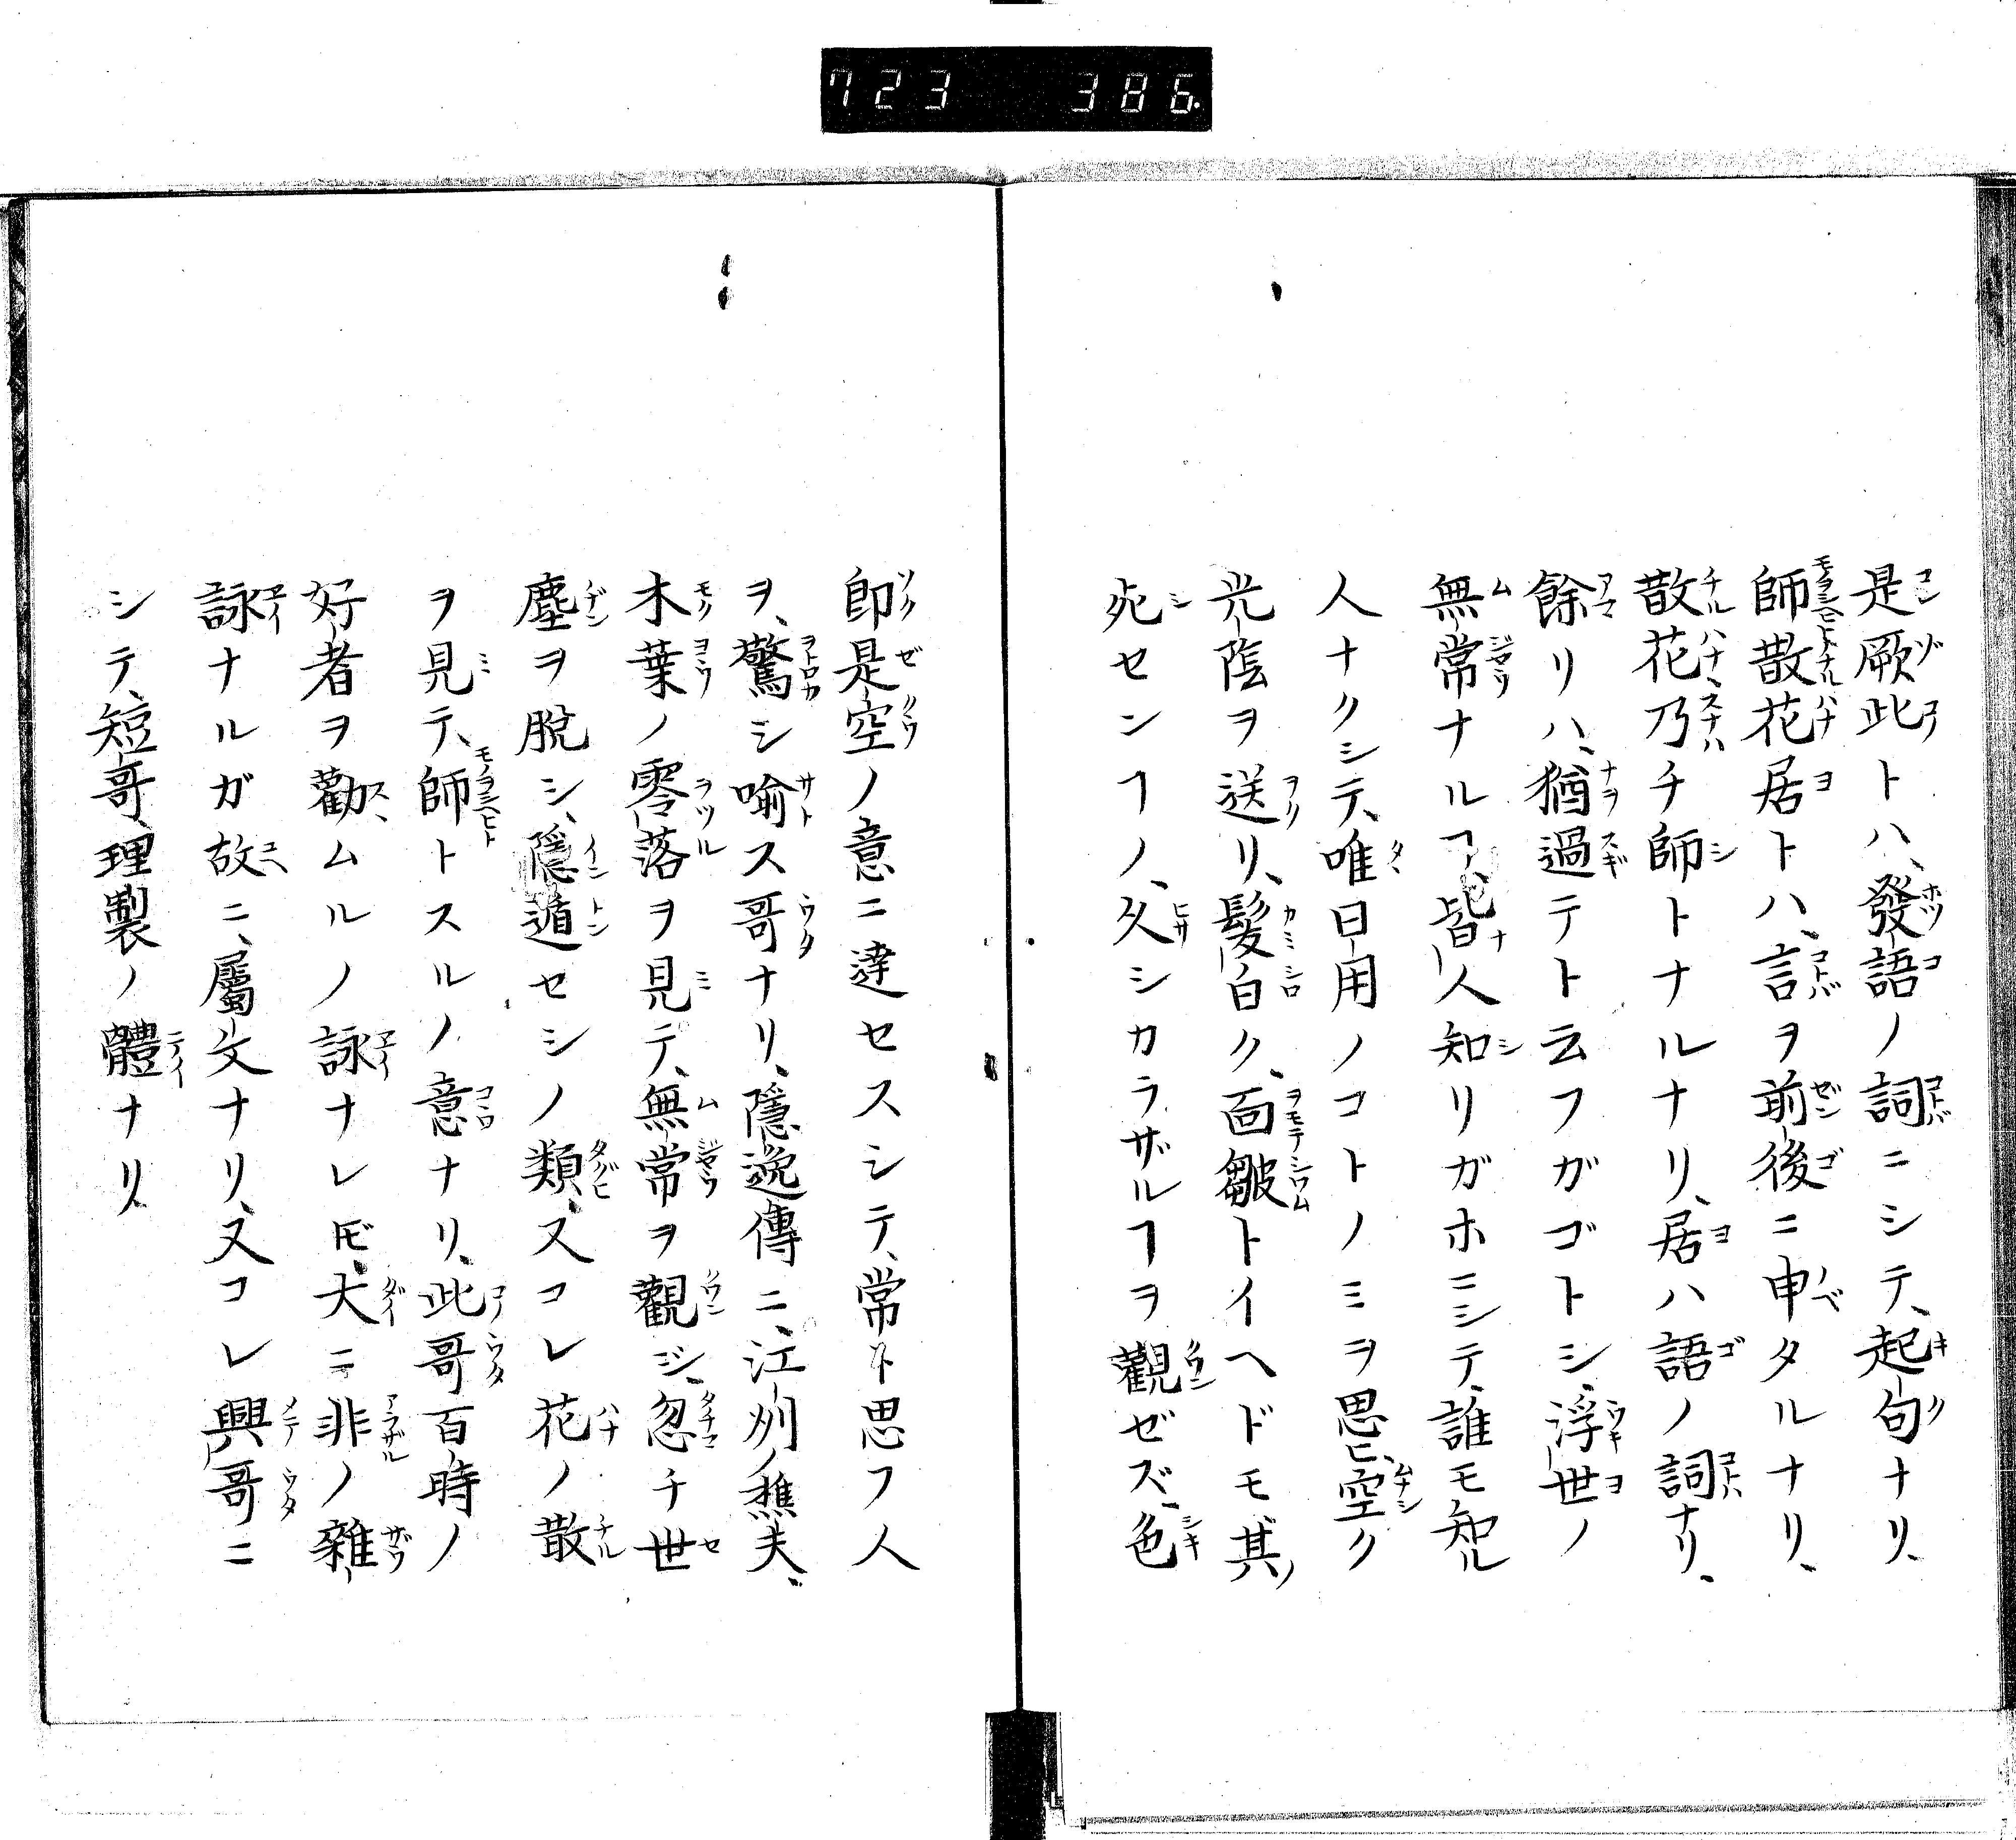 723 386
是厥此トハ、發語ノ詞ニシテ、起句ナリ、
師散花居トハ、言ヲ前後ニ申タルナリ、
散花乃チ師トナルナリ、居ハ語ノ詞ナリ、
餘リハ、猶過テト云フガゴトシ、浮世ノ
無常ナルヿ、皆人知リガホニシテ、誰モ知ル
人ナクシテ、唯日用ノコトノミヲ思ヒ、空ク
光陰ヲ送リ、髪白ク、面皺トイヘドモ、其ノ
死センヿノ、久シカラザルヿヲ觀ゼズ、色
即是空ノ意ニ達セスシテ、常ト思フ人
ヲ、驚シ喻ス哥ナリ、隱逸傳ニ、江州ノ樵夫、
木葉ノ零落ヲ見テ、無常ヲ觀ジ、忽チ世
塵ヲ脫シ、隱遁セシノ類、又コレ花ノ散
ヲ見テ、師トスルノ意ナリ、此哥百時ノ
好者ヲ勸ムルノ詠ナレ𪜈、大ニ非ノ雜
詠ナルガ故ニ、屬文ナリ、又コレ興哥ニ
シテ、短哥、理製ノ體ナリ、